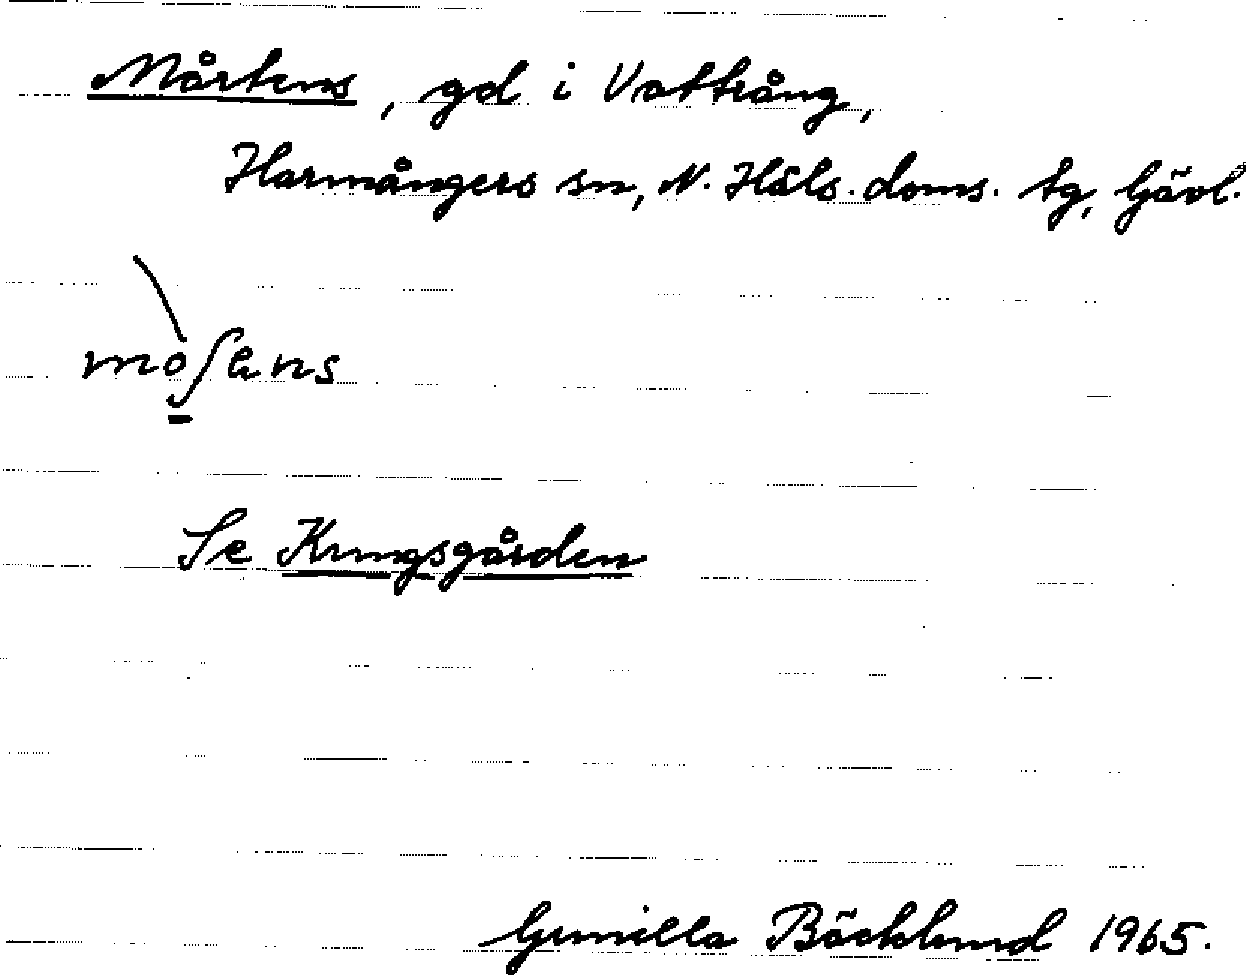 Mårtens, gd i Vattrång,
Harmångers sn, N. Häls. doms. tg, Gävl.
moʃens
Se Kungsgården
Gunilla Bäcklund 1965.